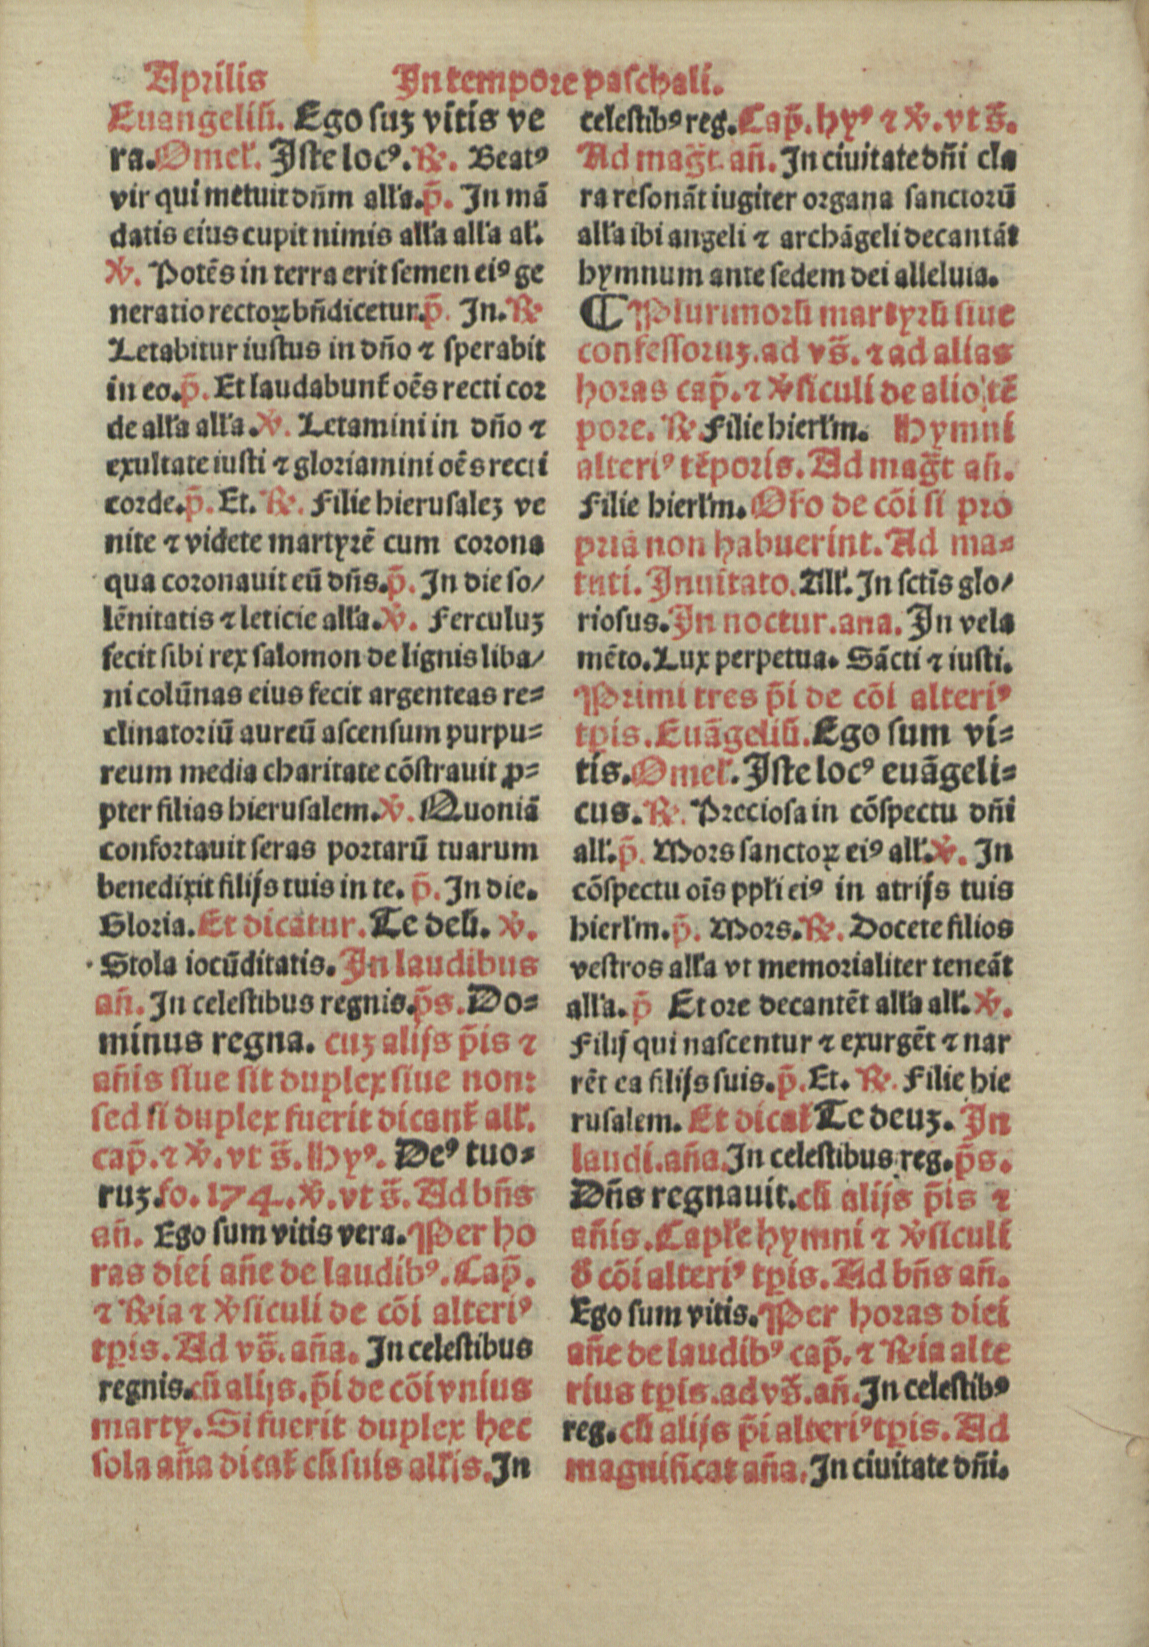 Aprilis In tempore paschali.
Euangeliū. Ego suꝫ vitis ve
ra. Omel'. Iste locꝰ. ℟. Beatꝰ
vir qui metuit dn̄m all'a. p̄. In mā
datis eius cupit nimis all'a all'a al'.
℣. Potēs in terra erit semen eiꝰ ge
neratio rectoꝝ bn̄dicetur. p̄. In. ℟
Letabitur iustus in dn̄o ⁊ sperabit
in eo. p̄. Et laudabunt̄ oēs recti cor
de all'a all'a. ℣. Letamini in dn̄o ⁊
exultate iusti ⁊ gloriamini oēs recti
corde. p̄. Et. ℟. Filie hierusaleꝫ ve
nite ⁊ videte martyrē cum corona
qua coronauit eū dn̄s. p̄. In die so/
lēnitatis ⁊ leticie all'a. ℣. Ferculuꝫ
fecit sibi rex salomon de lignis liba/
ni colūnas eius fecit argenteas re=
clinatoriū aureū ascensum purpu=
reum media charitate cōstrauit ꝓ=
pter filias hierusalem. ℣. Quoniā
confortauit seras portarū tuarum
benedixit filijs tuis in te. p̄. In die.
Gloria. Et dicatur. Te deū. ℣.
Stola iocūditatis. In laudibus
an̄. In celestibus regnis. p̄s. Do=
minus regna. cuꝫ alijs p̄is ⁊
an̄is siue sit duplex siue non:
sed si duplex fuerit dicant̄ all'.
cap̄. ⁊ ℣. vt s̄. Hyꝰ. Deꝰ tuo=
ruꝫ. fo. 174. ℣. vt s̄. Ad bn̄s
an̄. Ego sum vitis vera. Per ho
ras diei an̄e de laudibꝰ. Cap̄.
⁊ ℟ia ⁊ ℣siculi de cōi alteriꝰ
tp̄is. Ad vs̄. an̄a. In celestibus
regnis. cū alijs. p̄i de cōi vnius
marty. Si fuerit duplex hec
sola an̄a dicat̄ cū suis all'is. In
celestibꝰ reg. Cap̄. hyꝰ ⁊ ℣. vt s̄.
Ad maḡt. an̄. In ciuitate dn̄i cla
ra resonāt iugiter organa sanctorū
all'a ibi angeli ⁊ archāgeli decantāt
hymnum ante sedem dei alleluia.
¶ Plurimorū martyrū siue
confessoruꝫ. ad vs̄. ⁊ ad alias
horas cap̄. ⁊ ℣siculi de alio tē
pore. ℟. Filie hierl'm. Hymni
alteriꝰ tēporis. Ad maḡt an̄.
Filie hierl'm. Oro de cōi si pro
pria non habuerint. Ad ma=
tuti. Inuitato. All'. In sctīs glo/
riosus. In noctur. ana. In vela
mēto. Lux perpetua. Sācti ⁊ iusti.
Primi tres p̄i de cōi alteriꝰ
tp̄is. Euāgeliū. Ego sum vi=
tis. Omel'. Iste locꝰ euāgeli=
cus. ℟. Preciosa in cōspectu dn̄i
all'. p̄. Mors sanctoꝝ eiꝰ all'. ℣. In
cōspectu oīs ppl'i eiꝰ in atrijs tuis
hierl'm. p̄. Mors. ℟. Docete filios
vestros all'a vt memorialiter teneāt
all'a. p̄ Et ore decantēt all'a all'. ℣.
Filij qui nascentur ⁊ exurgēt ⁊ nar
rēt ea filijs suis. p̄. Et. ℟. Filie hie
rusalem. Et dicat̄ Te deuꝫ. In
laudi. an̄a. In celestibus reg. p̄s.
Dn̄s regnauit. cū alijs p̄is ⁊
an̄is. Capl'e hymni ⁊ ℣siculi
đ cōi alteriꝰ tp̄is. Ad bn̄s an̄.
Ego sum vitis. Per horas diei
an̄e de laudibꝰ cap̄. ⁊ ℟ia alte
rius tp̄is. ad vs̄. an̄. In celestibꝰ
reg. cū alijs p̄i alteriꝰ tp̄is. Ad
magnificat an̄a. In ciuitate dn̄i.